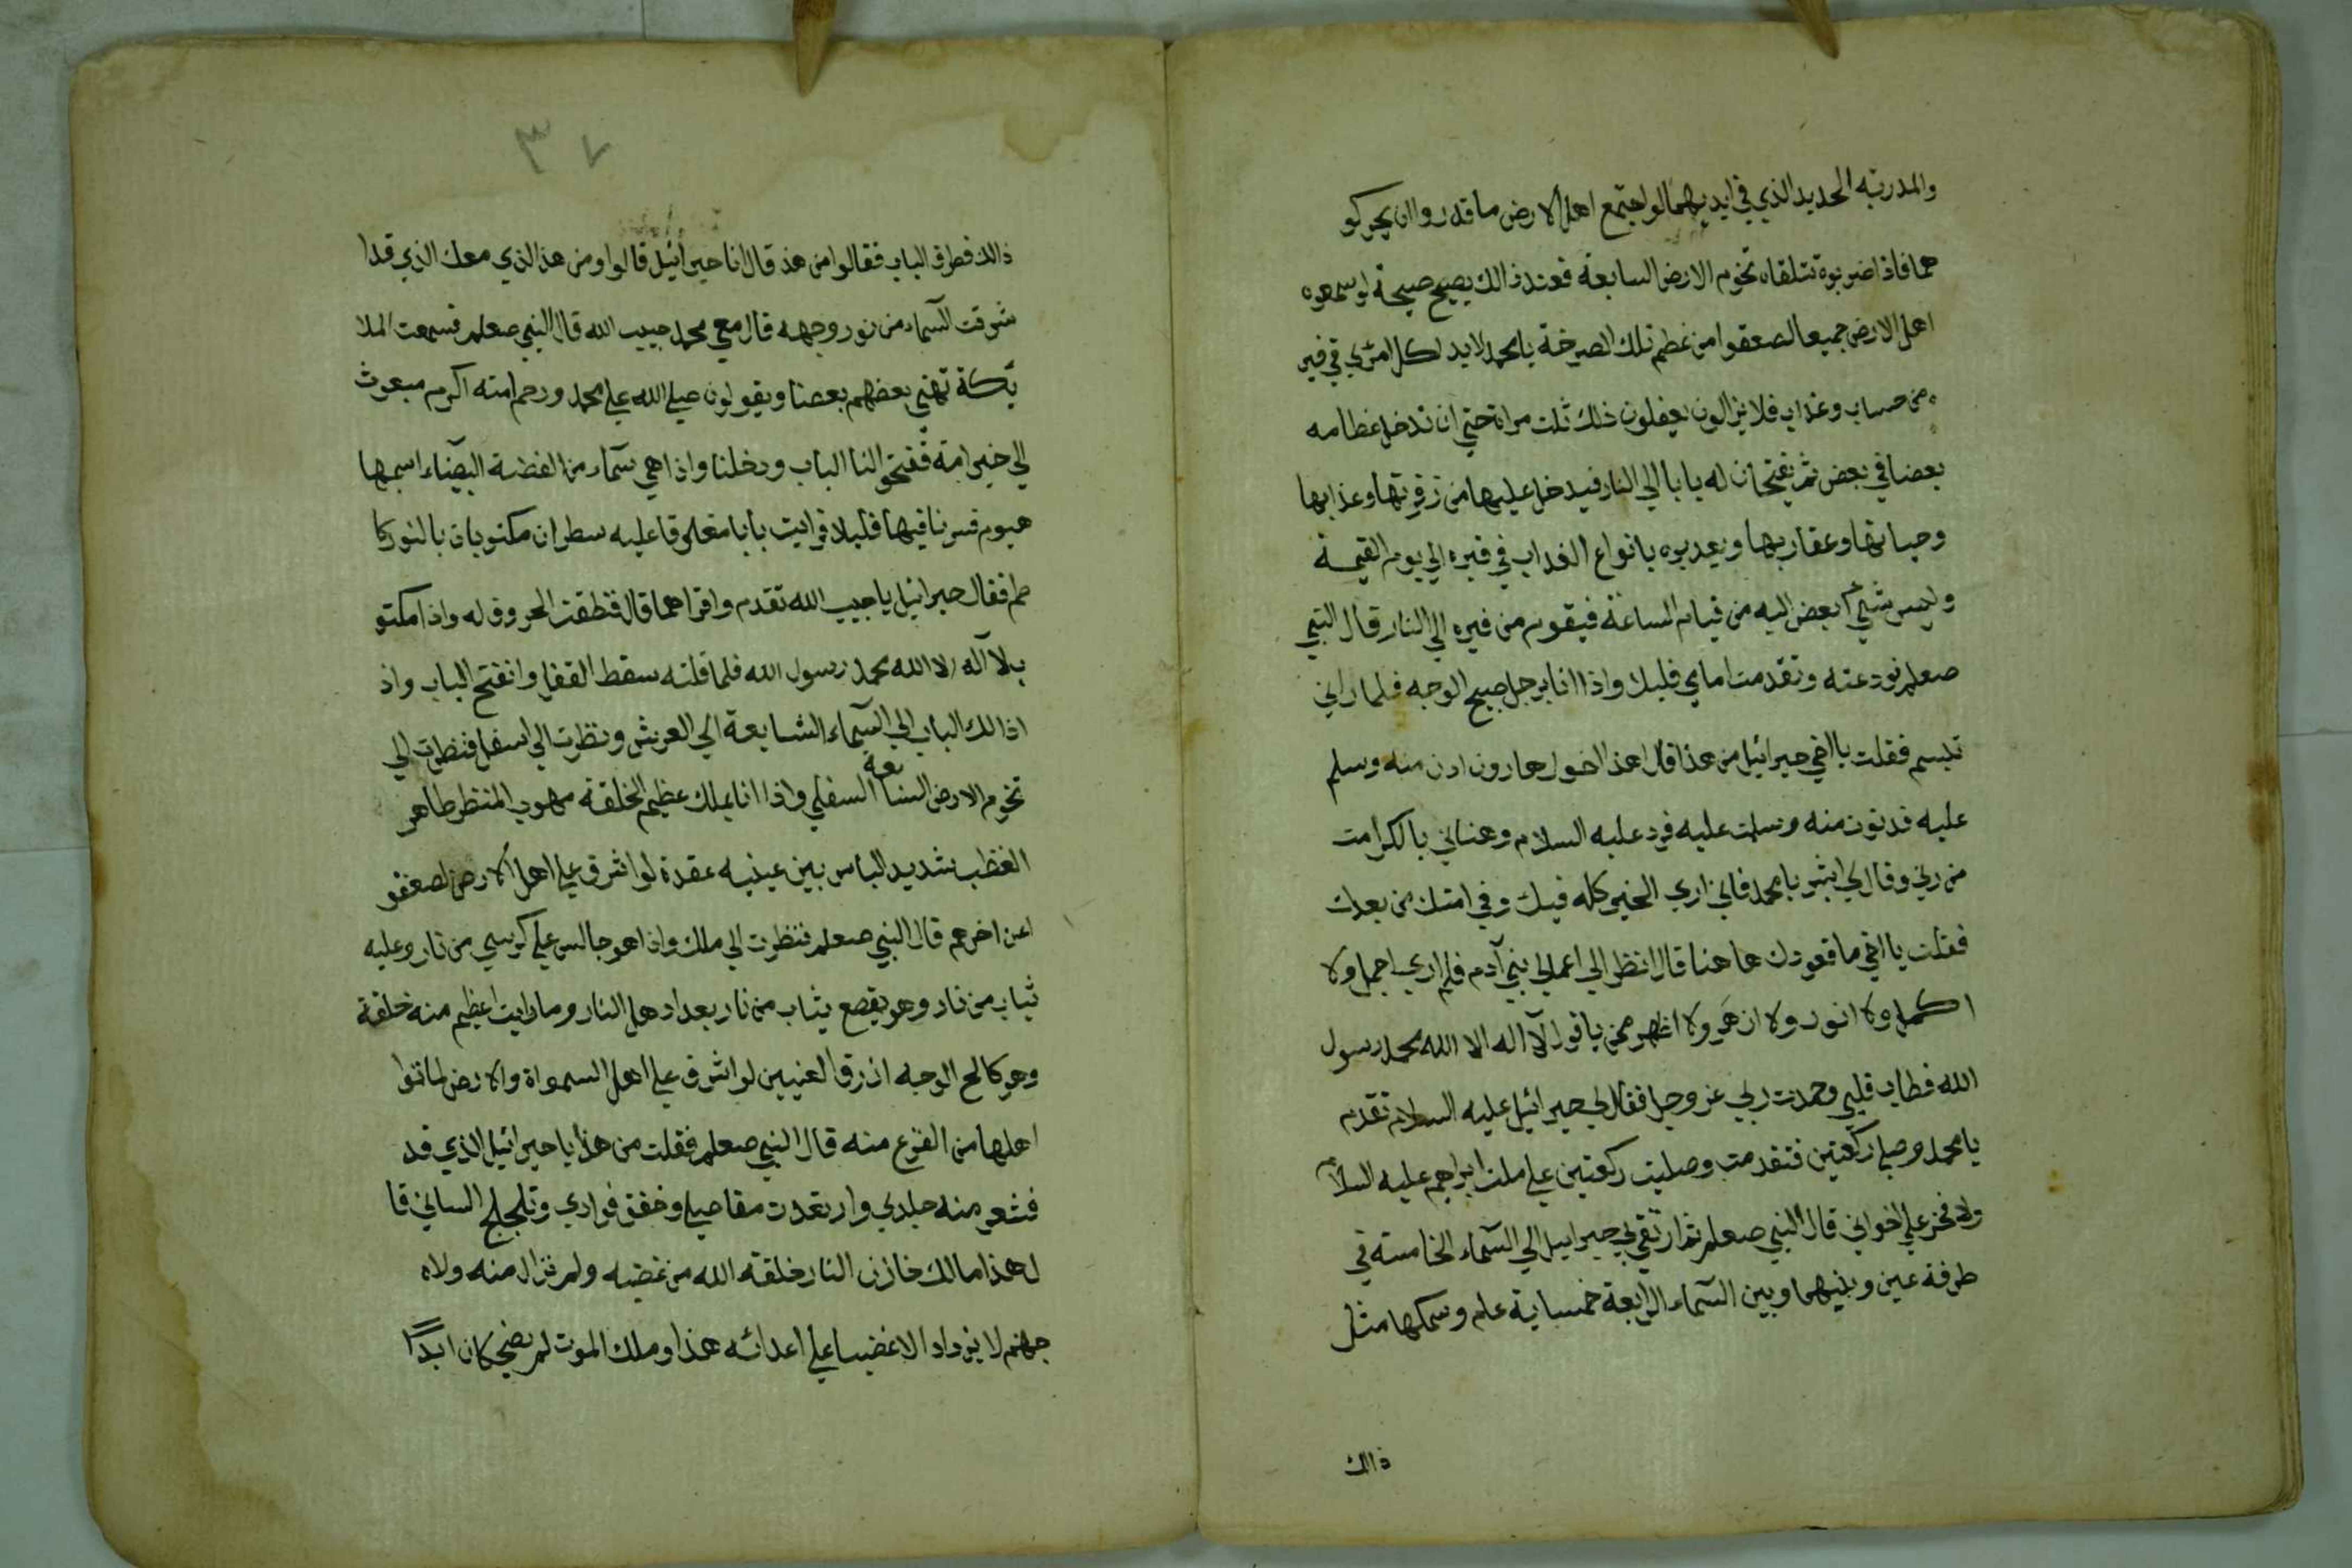 والمدرته الحديد الذي في ايديهما لو اجتمع اهل الارض ما قدروا ان يحركو
هما فاذا ضربوه تتلقاه تخوم الارض السابعة فعند ذالك يصيح صيحة لو سمعوه
اهل الارض جميعا لصعقوا من عظم تلك الصرخة يا محمد لابد لكل امرئ في قبر
ه من حساب وعذاب فلا يزالون يفعلون ذلك ثلت مراة حتي ان تدخل عظامه
بعضا في بعض ثم يفتحان له بابا الي النار فيدخل عليها من زفرتها وعذابها
وحياتها وعقاربها ويعدبوه بانواع العداب في قبره الي يوم القيمة
وليس شئ ابعض اليه من قيام الساعة فيقوم من قبره الي النار قال النبي
صعلم نودعته وتقدمت امامي قليلا واذا انا برجل صبيح الوجه فلما راني
تبسم فقلت يا اخي جبرائيل من هذا قال هذا اخوك هارون ادن منه وسلم
عليه فدنوت منه وسلمت عليه فرد عليه السلام وهناني بالكرامت
من ربي وقال لي ابشر يا محمد فاني اري الخير كله فيك وفي امتك من بعدك
فقلت يا اخي ما قعودك هاهنا قال انظر الي اعمال بني آدم فلم اري اجمل ولا
اكمل ولا انور ولا ازهي ولا اظهر ممن ياقول لآ اله الا الله محمد رسول
الله فطاب قلبي وحمدت ربي عز وجل فقال لي جبرائيل عليه السلام تقدم
يا محمد وصلي ركعتين فتقدمت وصليت ركعتين علي ملت ابراهيم عليه السلام
ولا فخر علي اخواني قال النبي صعلم ثم ارتقي بي جبراييل الي السمآء الخامسته في
طرفة عين وبينهما وبين السمآء الرابعة خمسماية عام وسمكها مثل
ذالك
٣٧
ذالك فطرق الباب فقالوا من هذ قال انا جبرائيل قالوا ومن هذ الذي معك الذي قدا
شرقت السمآء من نور وجهه قال معي محمد حبيب الله قال النبي صعلم فسمعت الملا
يكة تهني بعضهم بعضا ويقولون صلي الله علي محمد ورحم امته اكرم مبعوث
الي خير امة ففتحو النا الباب ودخلنا واذا هي سمآء من الفضة البيضاء اسمها
هيوم فسرنا فيها قليلا فرايت بابا مغلوقا عليه سطران مكتوبان بالنور كا
طم فقال جبرائيل يا حبيب الله تقدم واقراهما قال فنطقت الحروف له واذا مكتو
ب لا آله الا الله محمد رسول الله فلما قلته سقط القفل وانفتح الباب واذ
اذالك الباب الي السمآء السابعة الي العرش ونظرت الي اسفل فنظرت الي
تخوم الارض السابعة السفلي واذا انا بملك عظيم الخلقة مهوب المنظر طاهر
الغظب شديد الباس بين عينيه عقدة لو اشرق علي اهل الارض لصعقو
اعن اخرهم قال النبي صعلم فنظرت الي ملك واذا هو جالس علي كرسي من نار وعليه
ثياب من نار وهو يقصع يثاب من نار بعداد هل النار وما رايت اعظيم منه خلقة
وهو كالح الوجه ازرق العنيين لو اشرق علي اهل السمواة والارض لماتوا
اهلها من الفزع منه قال النبي صعلم فقلت من هذا يا جبرائيل الذي قد
فشعر منه جلدي وارتعدت مفاصلي وخفق فوادي وتلجلج الساني قا
ل هذا مالك خازن النار خلقه الله من غضبه ولم تزال منه ولاه
جهنم لا يزداد الا غضبا علي اعدائه هذا وملك الموت لم يضحكان ابدًا